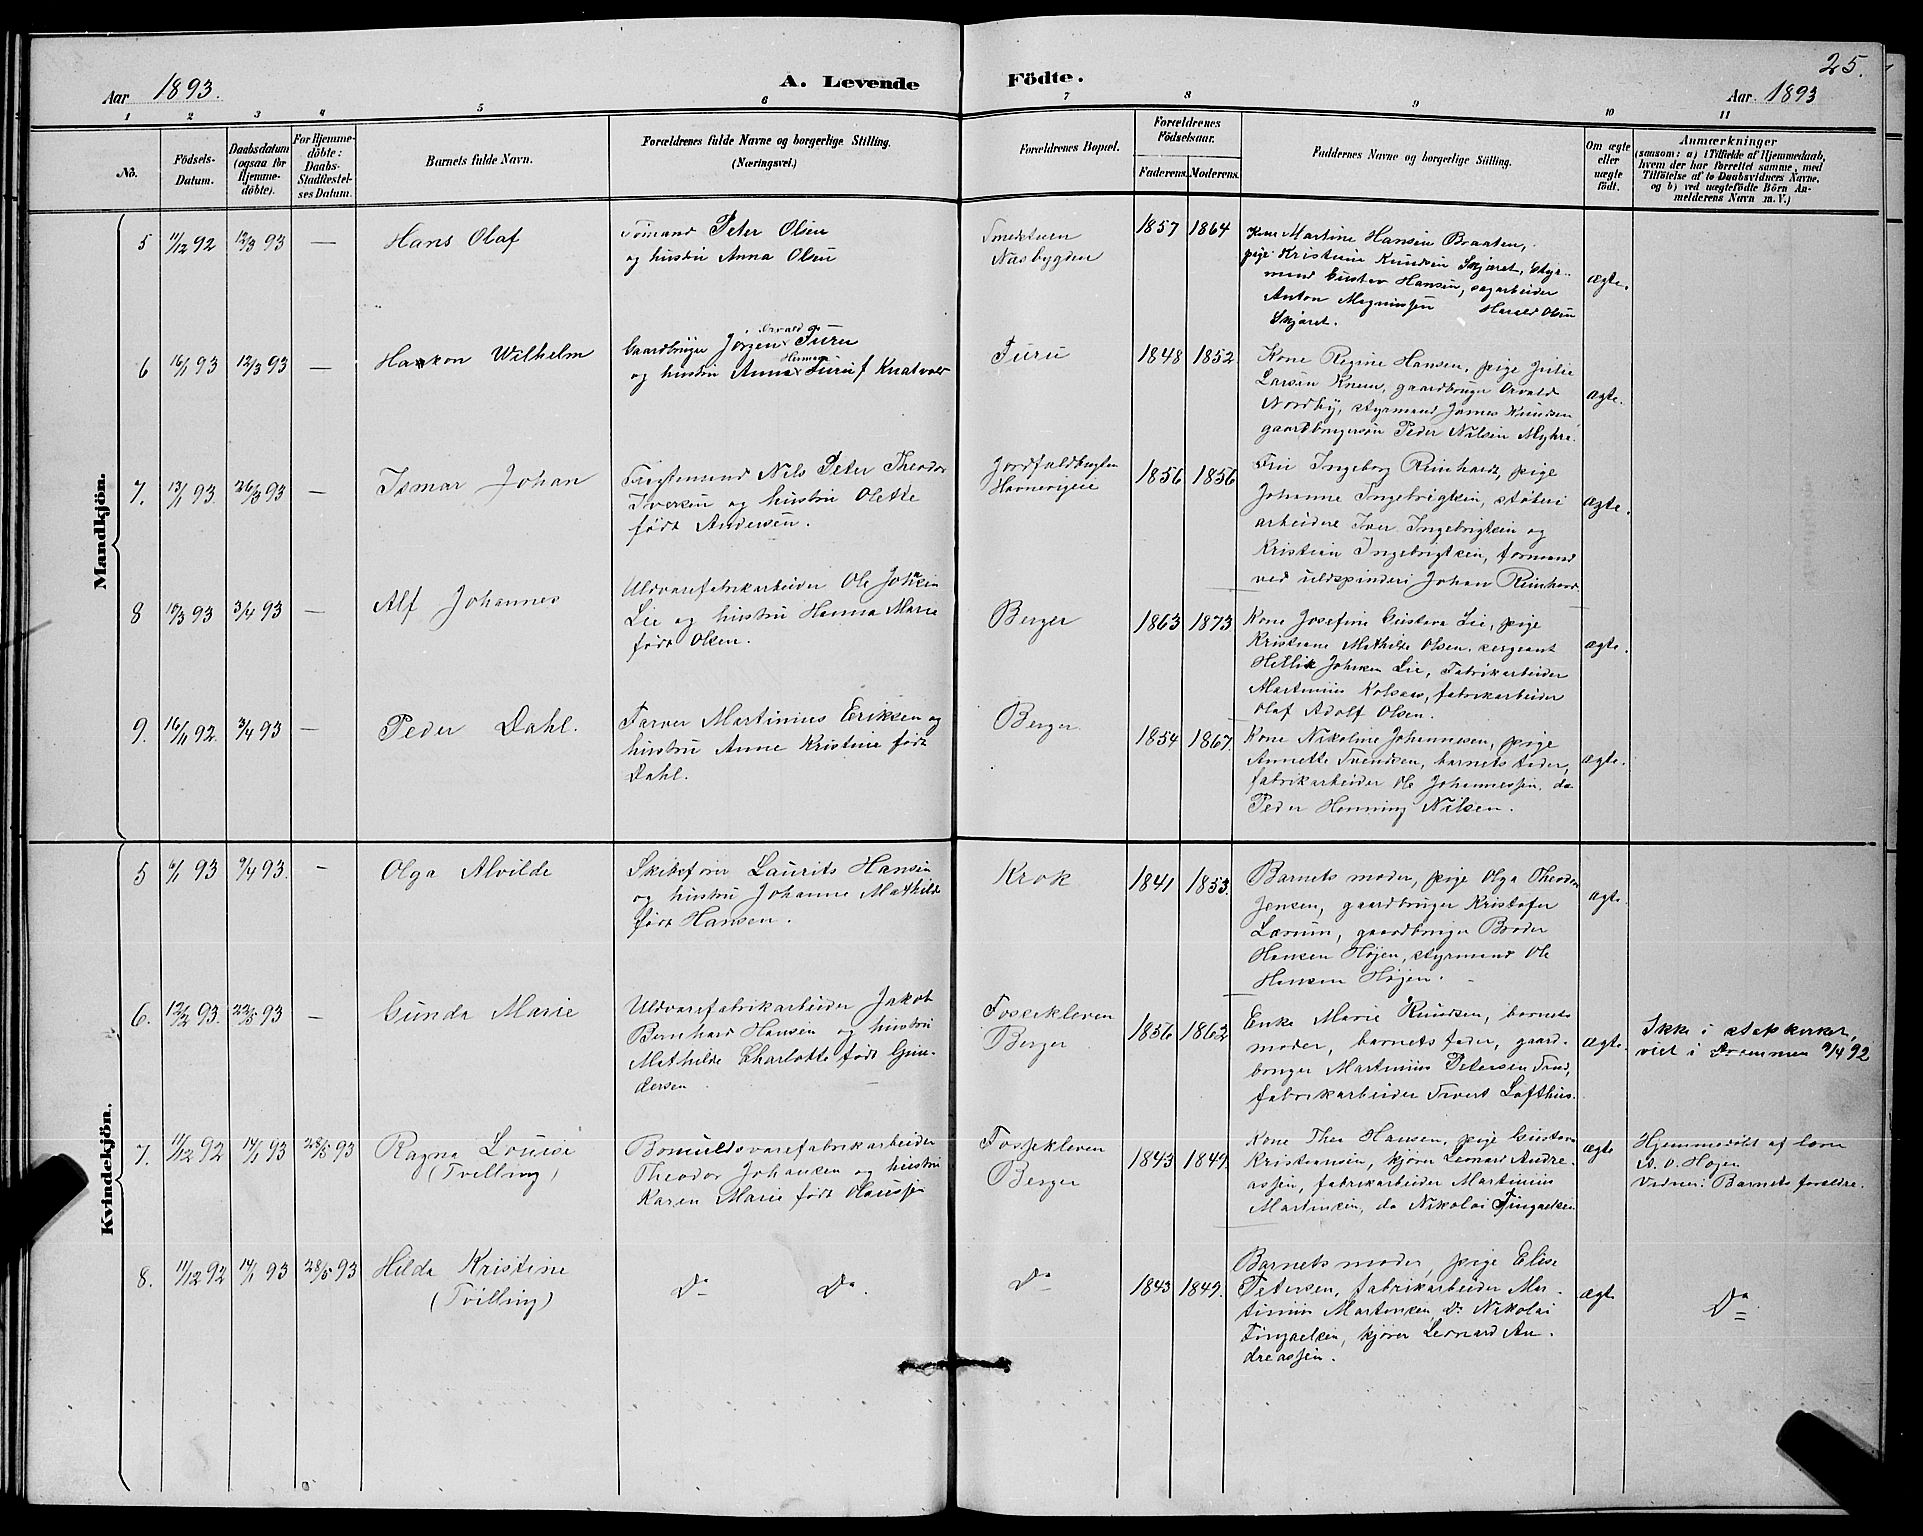 25.
Aar 1893.
A. Levende Födte.
Aar 1893
1 2 3 4 5 6 7 8 9 10 11
No.
Födsels-Datum.
Daabsdatum (ogsaa för Hjemme-döbte).
For Hjemme-döbte: Daabs-Stadfestel-ses Datum.
Barnets fulde Navn.
Forældrenes fulde Navne og borgerlige Stilling. (Næringsvei.)
Forældrenes Bopæl.
Forældrenes Födselsaar.
Faderens. Moderens.
Faddernes Navne og borgerlige Stilling.
Om ægte eller uægte födt.
Anmærkninger
(saasom: a) i Tilfælde af Hjemmedaab,
hvem der har forrettet samme, med
Tilföielse af to Daabsvidners Navne,
og b) ved uægtefödte Börn An-
melderens Navn m. V.)
Mandkjön.
5 11/12 92 12/3 93 — Hans Olaf
Sömand Peter Olsen
og hustru Anna Olsen
Næsbygden
1857 1864
Kone Martine Hansen Braaten,
pige Kristine Knudsen Skjæret, styr-
mand Gustav Hansen, sagarbeider
Anton Magnussen Harald Olsen
Skjæret.
ægte.
6 16/1 93 12/3 93 — Haakon Wilhelm
Gaardbruger Jörgen Orvald Furu
og hustru Anna Herman Furu f Knatvold
Furu
1848 1852
Kone Regine Hansen, pige Julie
Larsen Knem, gaardbruger Orvald
Nordby, styrmand James Knudsen
gaardbrugersön Peder Nilsen Myhre.
ægte.
7. 13/1 93. 26/3 93 — Ismar Johan
Fragtemand Nils Peter Theodor
Iversen og hustru Olette
födt Andersen.
Jordfaldbugten
1856 1856
Fru Ingeborg Reinhardt, pige
Johanne Ingebrigtsen, støberi
arbeidere Iver Ingebrigtsen og
Kristian Ingebrigtsen, formand
ved uldspinderi Johan Reinhard
ægte.
8 3/4 93 — Alf Johannes
Uldvarefabrikarbeider Ole Johnsen
Lie og hustru Hanna Marie
födt Olsen.
Berger
1863 1873
Kone Josefine Gustava Lie, pige
Kristiane Mathilde Olsen, sergeant
Hellik Johnsen Lie, Fabrikarbeider
Martinius Kolsaas, fabrikarbeider
Olaf Adolf Olsen.
ægte.
9. 16/11 92. 3/4 93 — Peder Dahl.
Farver Martinius Eriksen og
hustru Anne Kristine født
Dahl.
Berger
1854 1867.
Kone Nikoline Johannesen, pige
Annette Svendsen, barnets fader,
fabrikarbeider Ole Johannessen, do
Peder Henning Nilsen.
ægte.
Kvindekjön.
5 6/1 93 9/4 93. — Olga Alvilde
Skibsfører Laurits Hansen
og hustru Johanne Mathilde
født Hansen.
Krok
1841 1853.
Barnets moder, pige Olga Theodora
Jensen, gaardbruger Kristofer
Lærum, gaardbruger Broder
Hansen Højen, styrmand Ole
Hansen Højen.
ægte.
6. 12/2 93. 22/5 93 — Gunda Marie
Uldvarefabrikarbeider Jakob
Bernhard Hansen og hustru
Mathilde Charlotte født Gun-
dersen
Fossekleven
Berger
1856 1862
Enke Marie Knudsen, barnets
moder, barnets fader, gaard-
bruger Martinius Petersen
fabrikarbeider Sivert Lofthus.
ægte.
Ikke i statskirken,
viet i Drammen 9/4 92
7. 11/12 92 14/1 93 28/5 93 Ragna Louise
(Tvilling)
Bomuldsvarefabrikarbeider
Theodor Johansen og hustru
Karen Marie født Olaussen
Fossekleven
Berger
1843 1849.
Kone Thea Hansen, pige Gustava
Kristiansen, kjører Leonard Andre-
assen, fabrikarbeider Martinius
Martinsen, do Nikolai Tingvalsen
ægte
Hjemmedøbt af lærer
Højen
Vidner: Barnets forældre.
8. 11/12 92 14/1 93 28/5 93 Hilda Kristine
(Tvilling)
Do Do.
Do
1843 1849.
Barnets moder, pige Elise
Petersen, fabrikarbeider Mar-
tinius Martinsen, Do Nikolai
Tingvalsen, kjører Leonard An-
dreassen.
ægte
Do